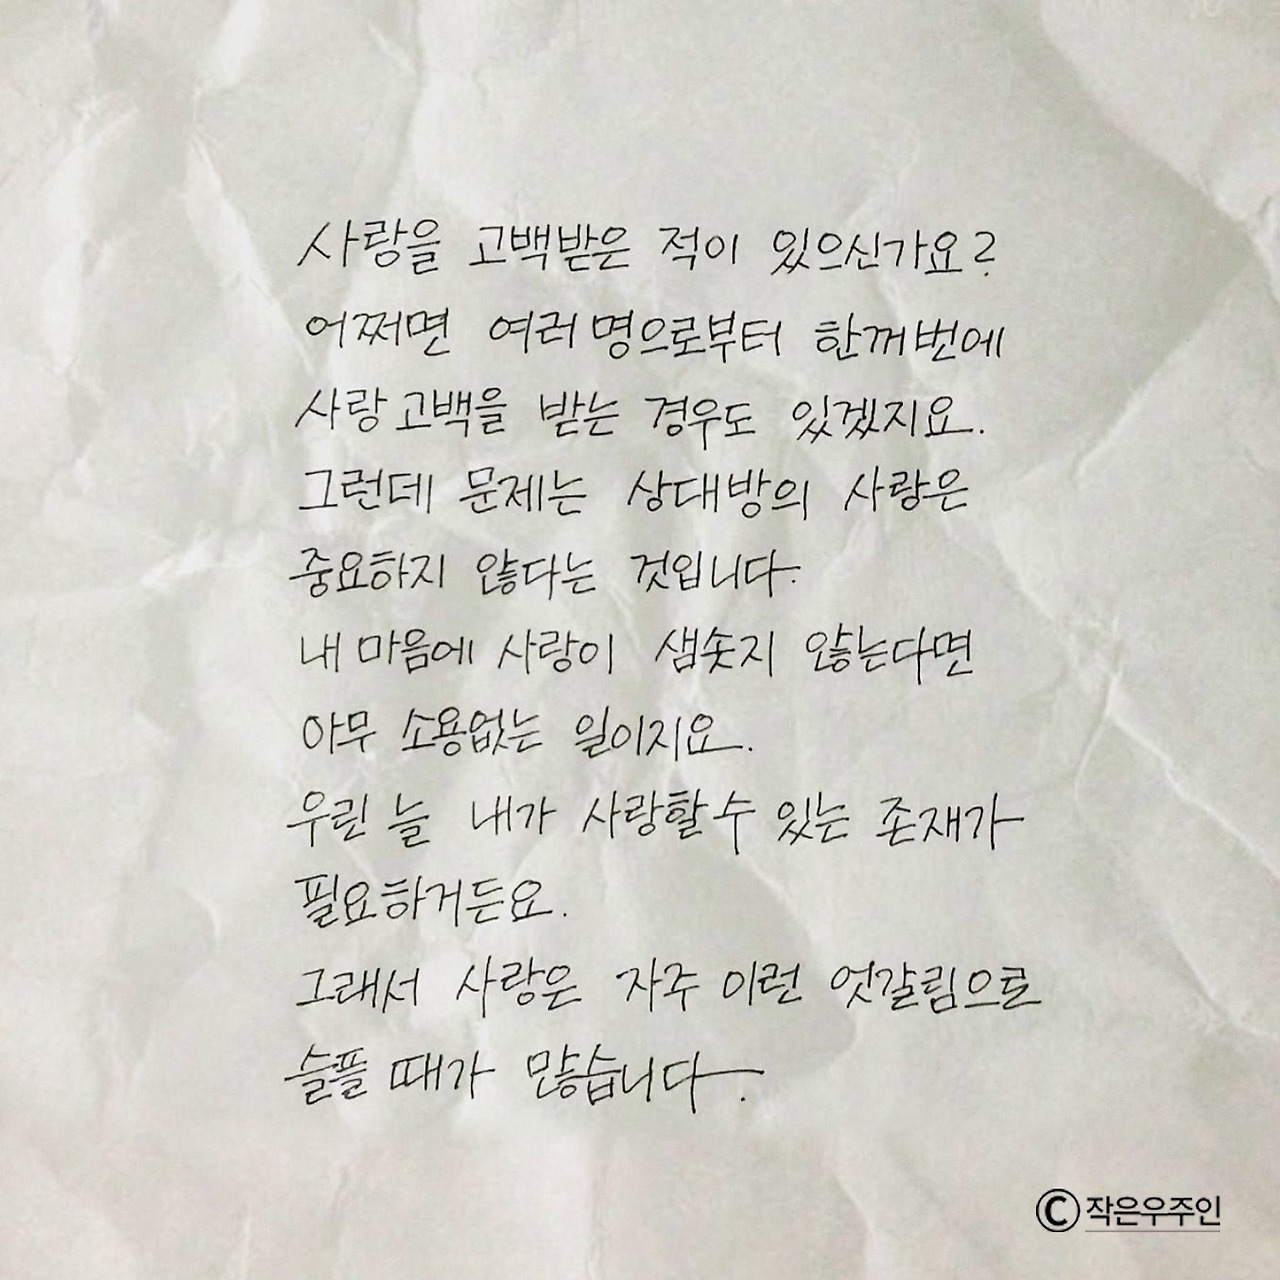 사랑을 고백받은 적이 있으신가요?
어쩌면 여러명으로부터 한꺼번에
사랑고백을 받는 경우도 있겠지요.
그런데 문제는 상대방의 사랑은
중요하지 않다는 것입니다.
내 마음에 사랑이 샘솟지 않는다면
아무 소용없는 일이지요.
우린 늘 내가 사랑할 수 있는 존재가
필요하거든요.
그래서 사랑은 자주 이런 엇갈림으로
슬플 때가 많습니다.
©작은우주인